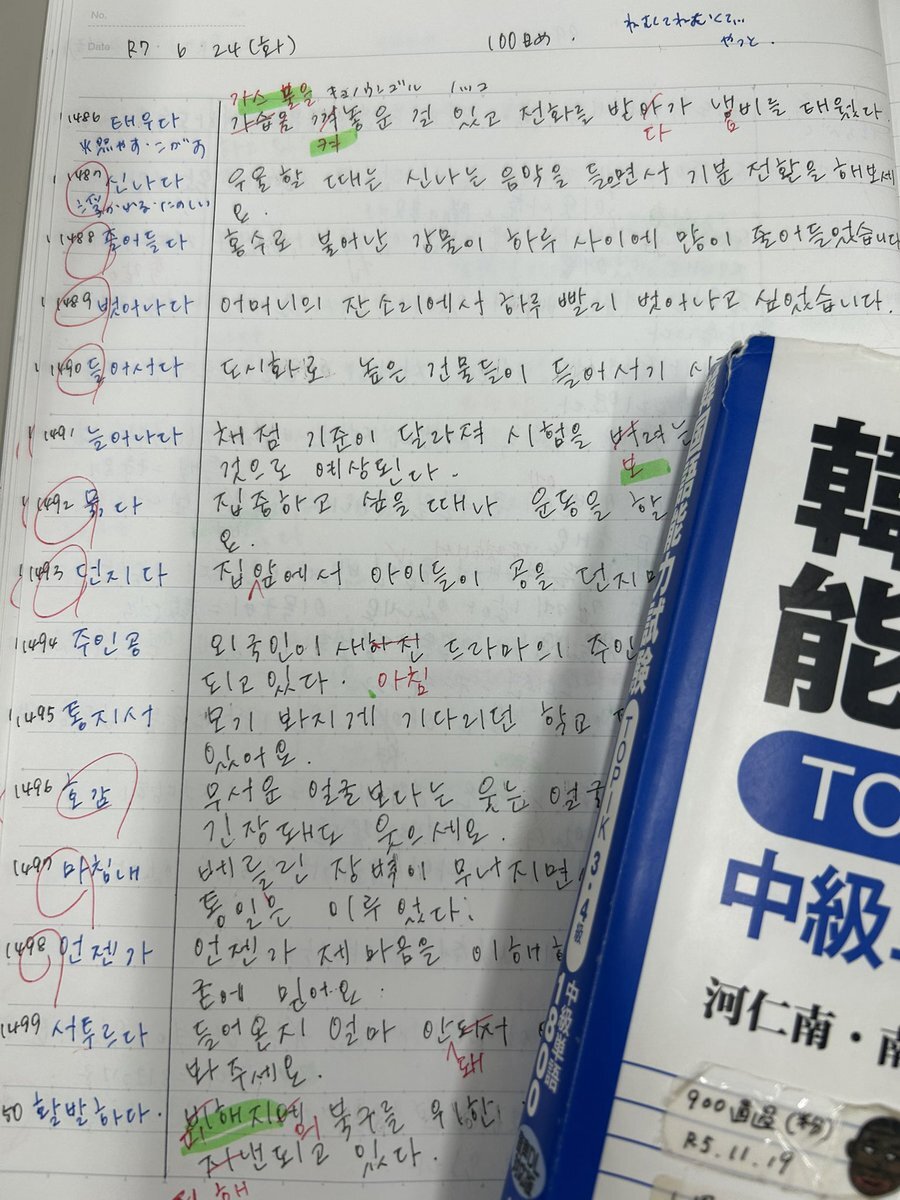 No.
Date R7 6 24(화)
100日め.
ねむくてねむくて...
やっと.
가스 불을
1486 태우다
가슴음 켜놓운 걸 잊고 전화를 받아가 냄비를 태웠다.
켜
다
※燃やす・こがす
1487 신나다
우울할 때는 신나는 음악을 들으면서 기분 전환을 해보세
요.
1488 줄어들다
홍수로 불어난 강물이 하루 사이에 많이 줄어들었습니다
1489 벗어나다
어머니의 잔소리에서 하루 빨리 벗어나고 싶었습니다.
1490 들어서다
도시화로 높은 건물들이 들어서기 시
1491 늘어나다
채점 기준이 달라져 시험을
보
것으로 예상된다.
1492 묶다
집중하고 싶을 때나 운동을 할
요.
1493 던지다
집앞에서 아이들이 공을 던지며
1494 주인공
외국인이 새하전 드라마의 주인
되고 있다. 아침
1495 통지서
모기 봐지게 기다리던 학교
있어요.
1496 호감
무서운 얼굴보다는 웃는 얼굴
긴장돼도 웃으세요.
1497 마침내
베를린 장벽이 무너지면
통일은 이루었다.
1498 언젠가
언젠가 제 마음을 이해
굳에 믿어요.
1499 서투르다
들어온지 얼마 안돼서
돼
봐주세요.
50 활발하다.
북구를 위한
되고 있다.
韓
能
TO
中級
河仁南・南
韓国語能力試験 TOPIK 3・4級 中級単語 1800
900週(務)
R5.11.19